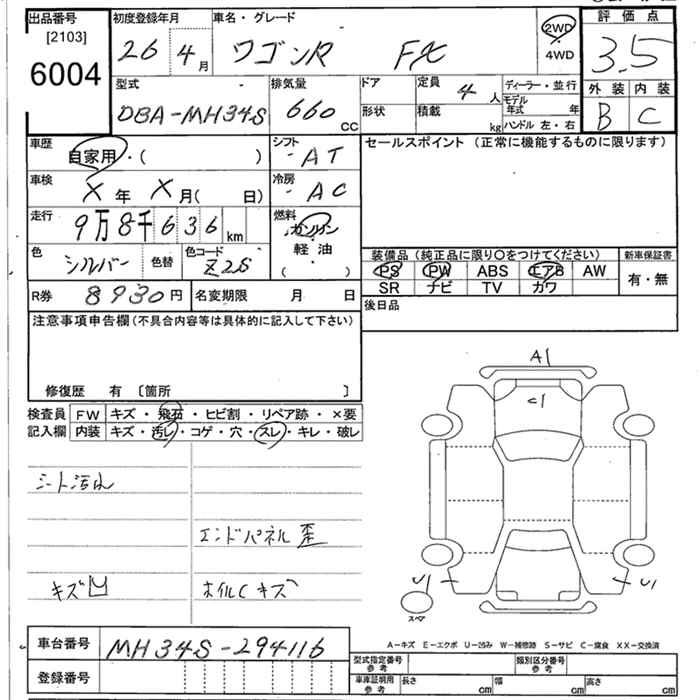 出品番号 初度登録年月 車名・グレード 2WD 評価点
[2103] 26年4月 ワゴンR FX ・ 3.5
6004 4WD
型式 排気量 ドア 定員 4人 ディーラー・並行 外装 内装
DBA-MH34S 660cc 形状 積載 kg モデル年式 年 B C
ハンドル 左・右
車歴 自家用・( ) シフト ・AT セールスポイント (正常に機能するものに限ります)
車検 X年 X月( 日) 冷房 ・AC
走行 9万8千636km 燃料 ガソリン
軽油
( ・ )
色 シルバー 色替 色コード Z2S 装備品(純正品に限り〇をつけてください) 新車保証書
PS PW ABS エアB AW 有・無
SR ナビ TV カワ
R券 8930円 名変期限 月 日 後日品
注意事項申告欄(不具合内容等は具体的に記入して下さい)
修復歴 有 〔箇所 〕
検査員 FW キズ・飛石・ヒビ割・リペア跡・×要
記入欄 内装 キズ・汚レ・コゲ・穴・スレ・キレ・破レ
A1
C1
シート汚れ
エンドパネル歪
キズ凹 ホイルCキズ
U1 U1
スペア
車台番号 MH34S-294116
A-キズ E-エクボ U-凹み W-補修跡 S-サビ C-腐食 XX-交換済
登録番号
型式指定番号 参考 類別区分番号 参考
車庫証明用 参考 長さ cm 幅 cm 高さ cm